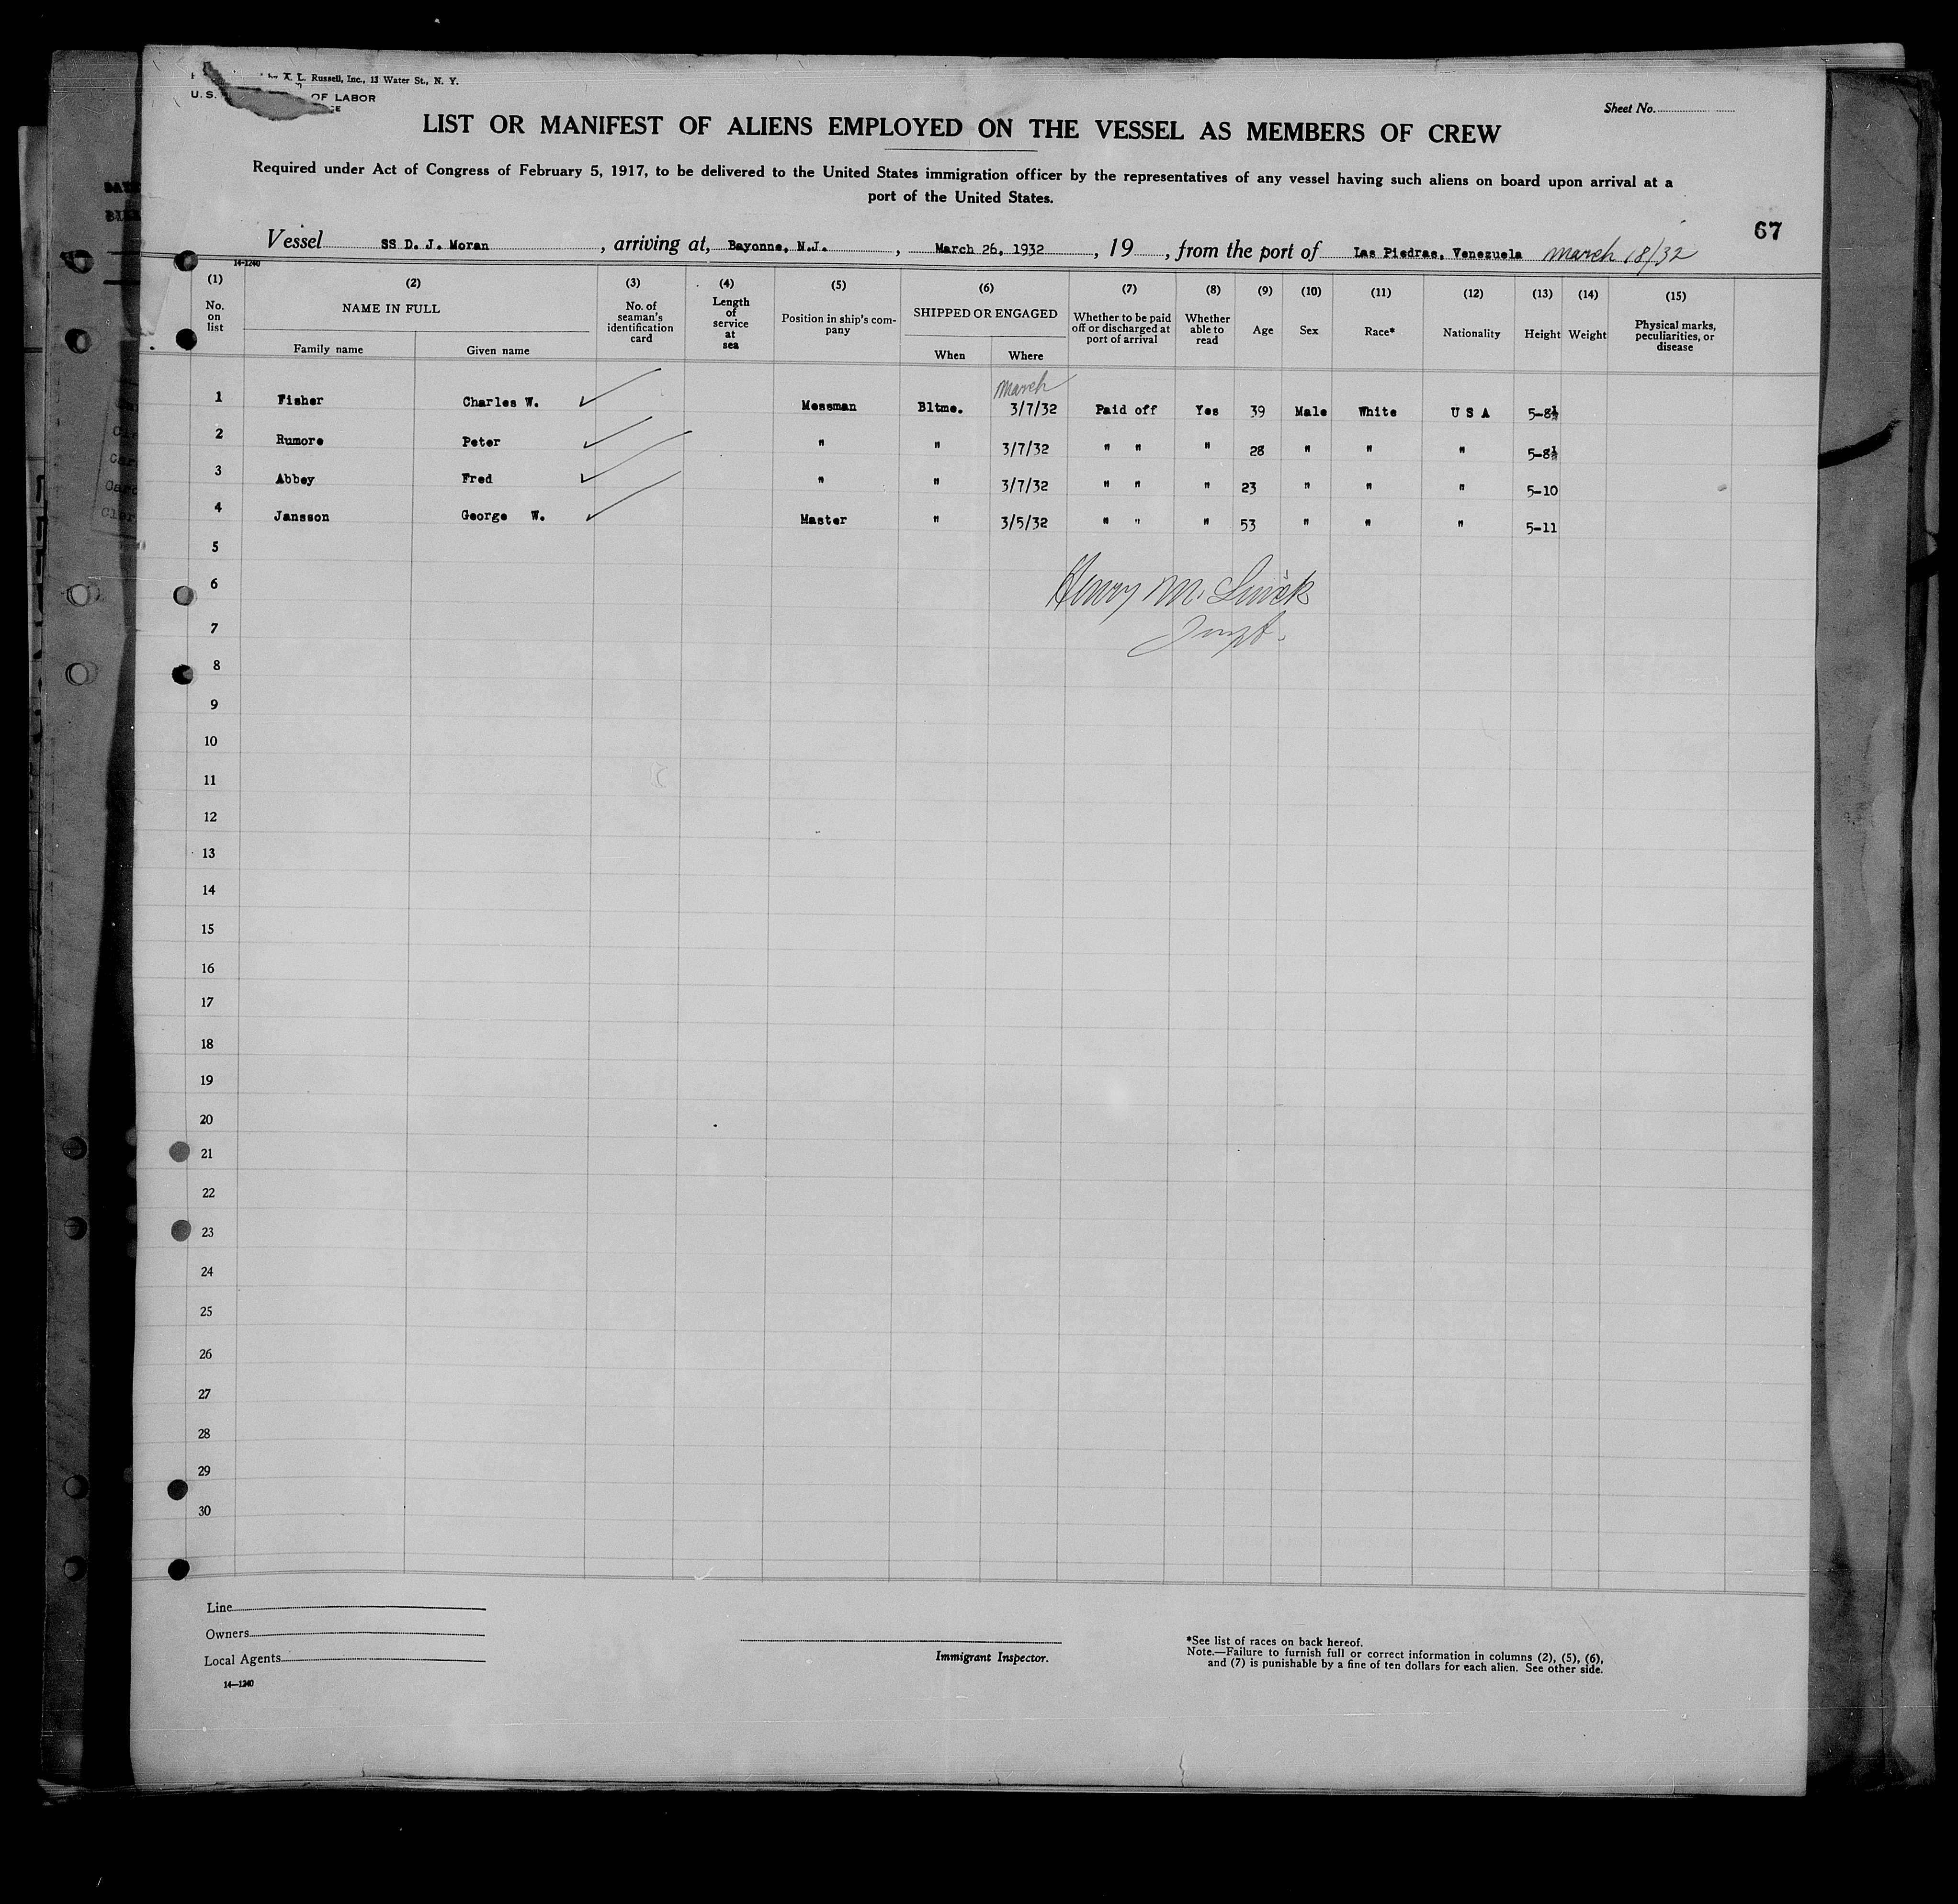 Russell, Inc., 13 Water St., N. Y.
U. S. OF LABOR
Sheet No.
LIST OR MANIFEST OF ALIENS EMPLOYED ON THE VESSEL AS MEMBERS OF CREW
Required under Act of Congress of February 5, 1917, to be delivered to the United States immigration officer by the representatives of any vessel having such aliens on board upon arrival at a
port of the United States.
67
Vessel SS D. J. Moran, arriving at, Bayonne, N.J., March 26, 1932, 19 , from the port of Las Piedras, Venezuela March 18/32
14-1240
(1) (2) (3) (4) (5) (6) (7) (8) (9) (10) (11) (12) (13) (14) (15)
No. on list NAME IN FULL No. of seaman's identification card Length of service at sea Position in ship's company SHIPPED OR ENGAGED Whether to be paid off or discharged at port of arrival Whether able to read Age Sex Race* Nationality Height Weight Physical marks, peculiarities, or disease
Family name Given name When Where
March
1 Fisher Charles W. ✓ Messman Bltme. 3/7/32 Paid off Yes 39 Male White U S A 5-8½
2 Rumore Peter ✓ " " 3/7/32 " " " 28 " " " 5-8½
3 Abbey Fred ✓ " " 3/7/32 " " " 23 " " " 5-10
4 Jansson George W. ✓ Master " 3/5/32 " " " 53 " " " 5-11
5
6 Henry M.
7
8
9
10
11
12
13
14
15
16
17
18
19
20
21
22
23
24
25
26
27
28
29
30
Line
Owners
Local Agents
14—1240
Immigrant Inspector.
*See list of races on back hereof.
Note.—Failure to furnish full or correct information in columns (2), (5), (6),
and (7) is punishable by a fine of ten dollars for each alien. See other side.